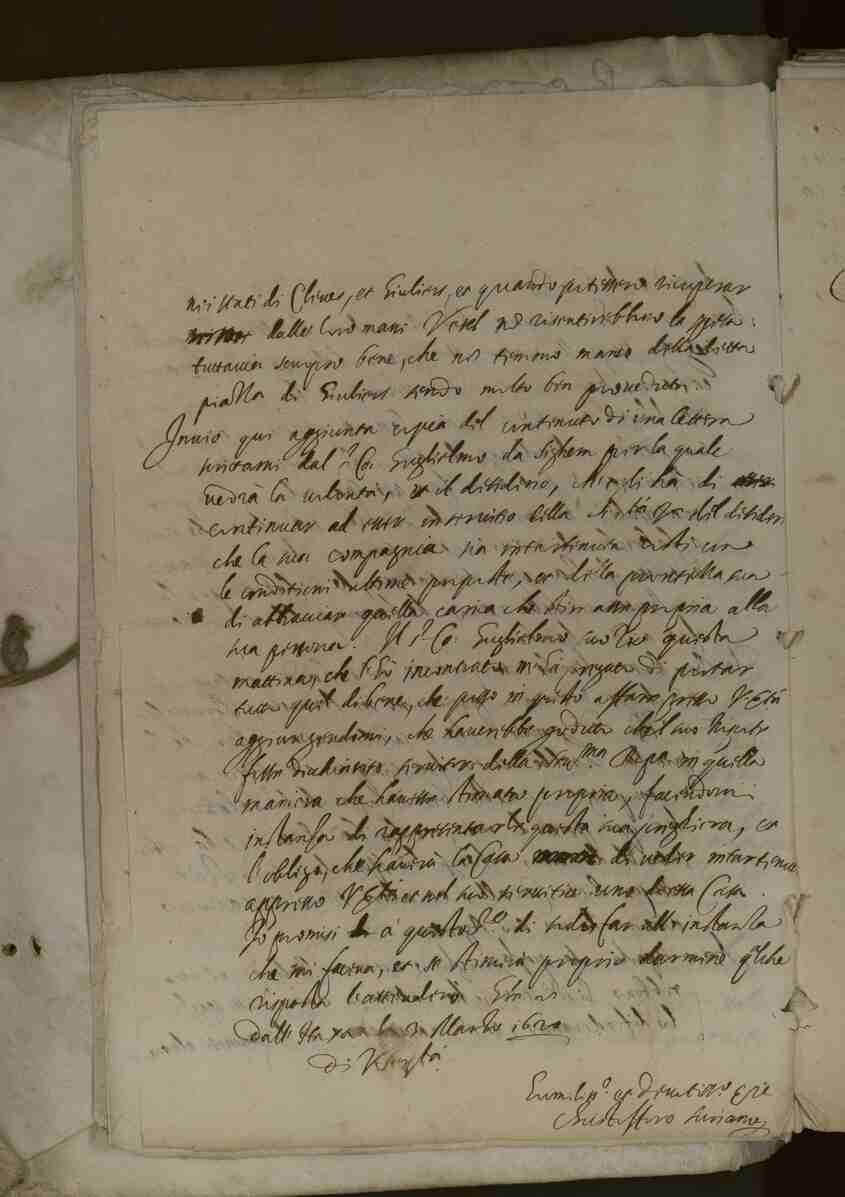 ne i stati di Cleves, et Giuliers, et quando potessero ricuperar
dalle loro mani Vesel nõ risentirebbero la spesa:
tuttavia sempre bene, che nõ temino manco della detta
piazza di Giuliers sendo molto ben proveduta.
Invio qui aggiunta copia del continuto di una lettera
scrittami dal s.r Co. Guglielmo da Sighem per la quale
vedrà la volontà, et il desiderio, che egli ha di
continuar ad esser in servitio della et del desiderio
che la sua compagnia sia intertenuta con
le conditioni ultime proposte, et de la prontezza sua
di abbracciar quella carica che stimata propria alla
sua persona. Il s.r Co. Guglielmo questa
mattina, che mi pregò di portar
tutto quel di bene, che posso in questo affare presso V. Stà
aggiungendomi, che haverebbe goduto che il suo
fosse servitore della ser.ma Rep.a in quella
maniera che havesse stimata propria, facendomi
instanza di rappresentarle questa sua preghiera, et
l'obligo, che haverà la Casa di veder intertenuto
appresso V. Stà et nel suo servitio uno di essa Casa.
Io promisi a questo s.re di sodisfar all'instanza
che mi faceva, et se stimerà proprio darmene qualche
risposta l'attenderò. Gratie
Dall'Haya a li Marzo 1620
Di V. Ser.tà
Humiliss.o et Devotiss.o Ser.e
Christofforo Suriano